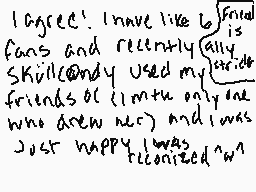 I agree! I have like 6
fans and recently
Sküllc@ndy used my
friends OC (Imth only one
who drew her) and I was
Just happy I was
reconized ^w^
Friend
is
ally
strider